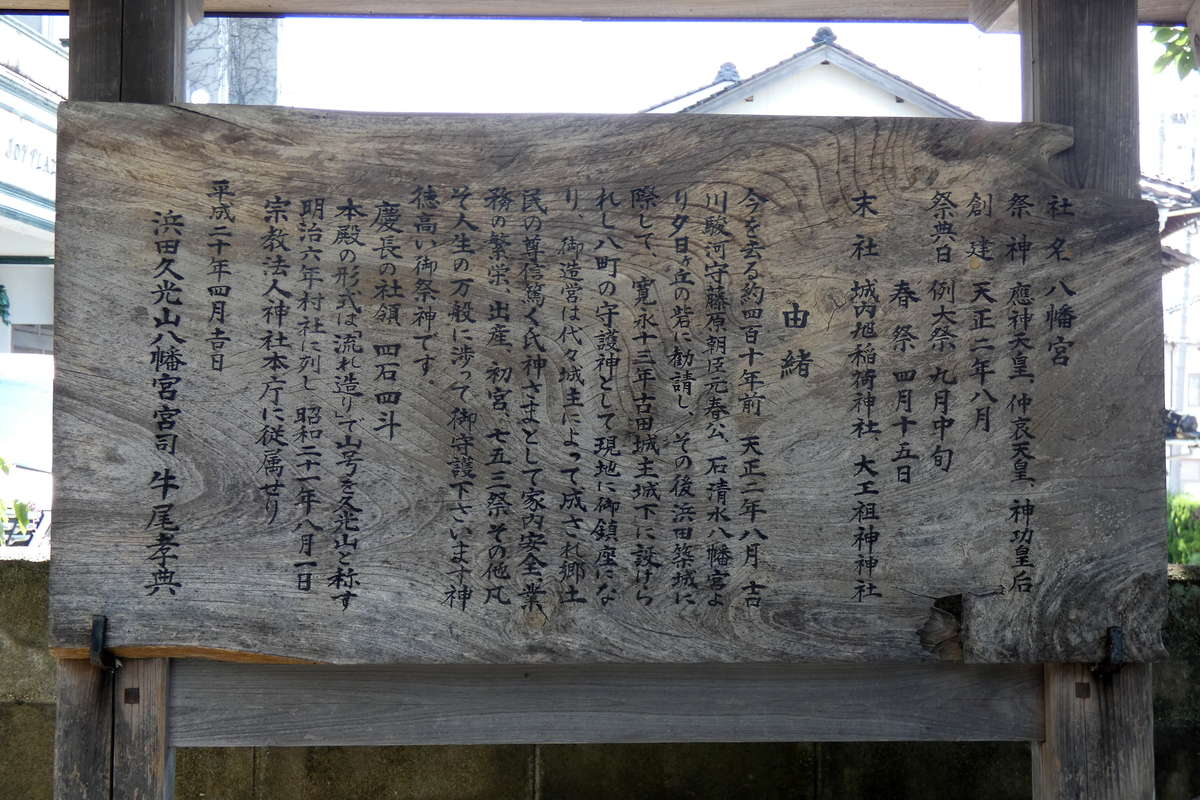 社名 八幡宮
祭神 應神天皇、仲哀天皇、神功皇后
創建 天正二年八月
祭典日 例大祭 九月中旬
春祭 四月十五日
末社 城内旭稲荷神社、大工祖神神社
由緒
今を去る約四百十年前 天正二年八月 吉
川駿河守藤原朝臣元春公、石清水八幡宮よ
り夕日ヶ丘の砦に勧請し、その後浜田築城に
際して、寛永十三年古田城主城下に設けら
れし八町の守護神として現地に御鎮座にな
り、御造営は代々城主によって成され郷土
民の尊信篤く氏神さまとして家内安全、業
務の繁栄、出産、初宮、七五三祭その他凡
そ人生の万般に渉って御守護下さいます神
徳高い御祭神です。
慶長の社領 四石四斗
本殿の形式は「流れ造り」で山号を久光山と称す
明治六年村社に列し 昭和二十一年八月一日
宗教法人神社本庁に従属せり
平成二十年四月吉日
浜田久光山八幡宮宮司 牛尾孝典